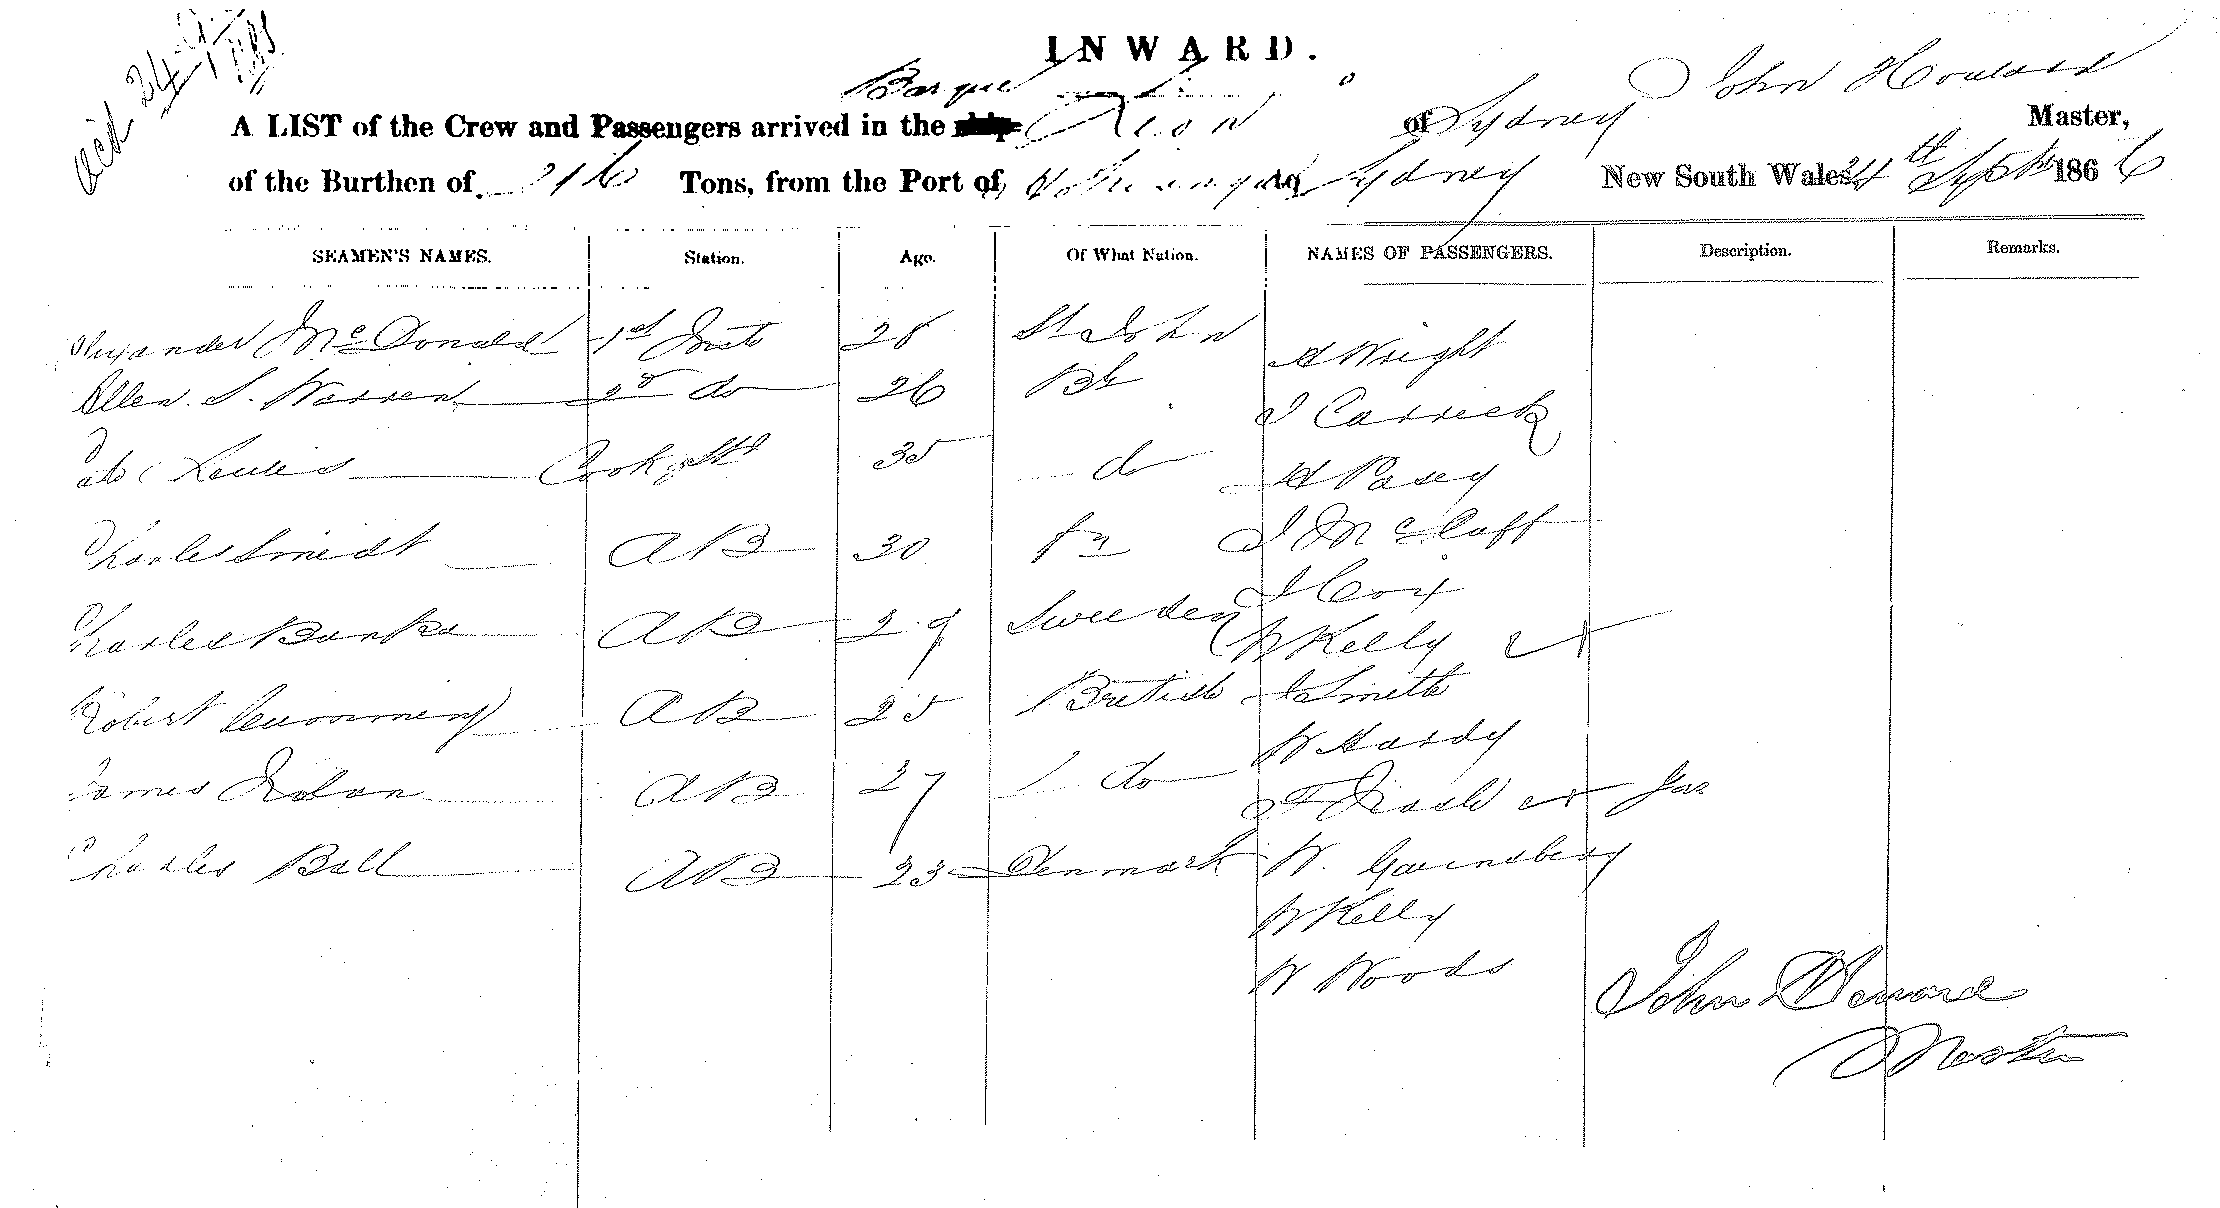 24
INWARD.
Barque John Howard
A LIST of the Crew and Passengers arrived in the ship of Sydney Master,
of the Burthen of 216 Tons, from the Port of to Sydney New South Wales 24th Septr 1866
SEAMEN'S NAMES. Station. Age. Of What Nation. NAMES OF PASSENGERS. Description. Remarks.
Alexander McDonald 1st Mate 28 St John
A Wright
Allen S. Warren 2d do 26
J Carrick
Louis Cook & Std 35 do
A Pasey
Charles Smidt AB 30
J McCluff
J Cox
Charles Banks AB 29 Sweeden
W Kelly
Robert Cumming AB 25 British
J Smith
W Hardy
James Dolan AB 27 do
F
Charles Ball AB 23 Denmark
W. Gainsbery
W Kelly
W Woods
John
Master